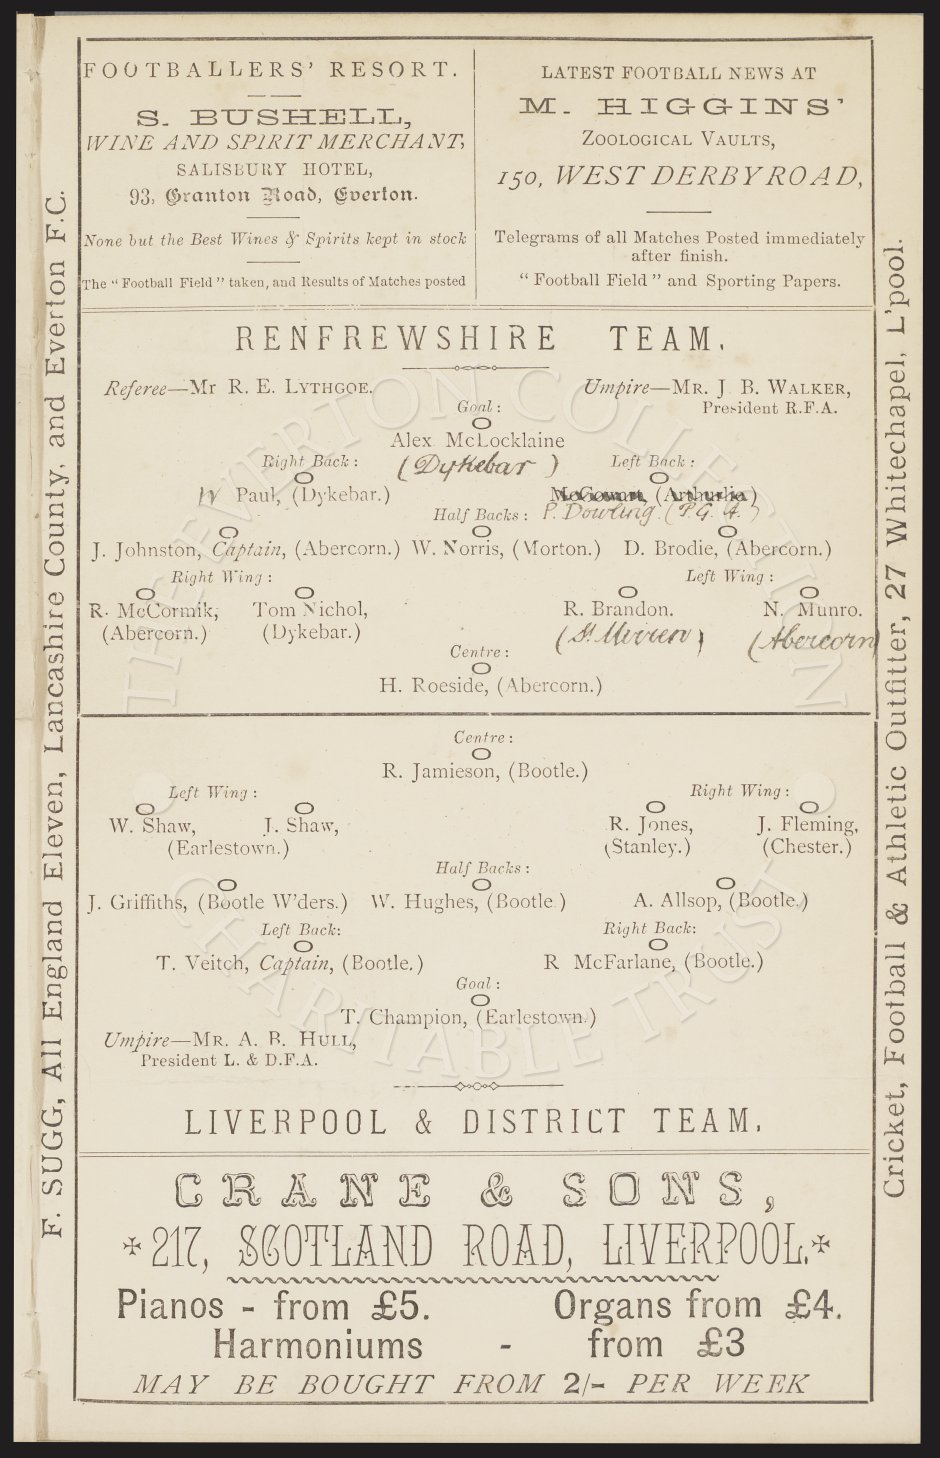 FOOTBALLERS' RESORT.
S. BUSHELL,
WINE AND SPIRIT MERCHANT,
SALISBURY HOTEL,
93, Granton Road, Everton.
None but the Best Wines & Spirits kept in stock
The "Football Field" taken, and Results of Matches posted
LATEST FOOTBALL NEWS AT
M. HIGGINS'
ZOOLOGICAL VAULTS,
150, WEST DERBY ROAD,
Telegrams of all Matches Posted immediately
after finish.
"Football Field" and Sporting Papers.
RENFREWSHIRE TEAM.
Referee—Mr R. E. LYTHGOE.
Umpire—MR. J. B. WALKER,
President R.F.A.
Goal:
Alex McLocklaine
(Dykebar)
Right Back:
Left Back:
W Paul, (Dykebar.)
McGowan, (Arthurlie)
P. Dowling. (P.G. A.)
Half Backs:
J. Johnston, Captain, (Abercorn.) W. Norris, (Morton.) D. Brodie, (Abercorn.)
Right Wing:
Left Wing:
R. McCormik, Tom Nichol, R. Brandon. N. Munro.
(Abercorn.) (Dykebar.) (St Mirren) (Abercorn)
Centre:
H. Roeside, (Abercorn.)
Centre:
R. Jamieson, (Bootle.)
Left Wing:
Right Wing:
W. Shaw, J. Shaw, R. Jones, J. Fleming,
(Earlestown.) (Stanley.) (Chester.)
Half Backs:
J. Griffiths, (Bootle W'ders.) W. Hughes, (Bootle.) A. Allsop, (Bootle.)
Left Back:
Right Back:
T. Veitch, Captain, (Bootle.) R McFarlane, (Bootle.)
Goal:
T. Champion, (Earlestown.)
Umpire—MR. A. B. HULL,
President L. & D.F.A.
LIVERPOOL & DISTRICT TEAM.
CRANE & SONS,
217, SCOTLAND ROAD, LIVERPOOL.
Pianos - from £5. Organs from £4.
Harmoniums - from £3
MAY BE BOUGHT FROM 2/- PER WEEK
F. SUGG, All England Eleven, Lancashire County, and Everton F.C.
Cricket, Football & Athletic Outfitter, 27 Whitechapel, L'pool.
THE EVERTON COLLECTION
CHARITABLE TRUST